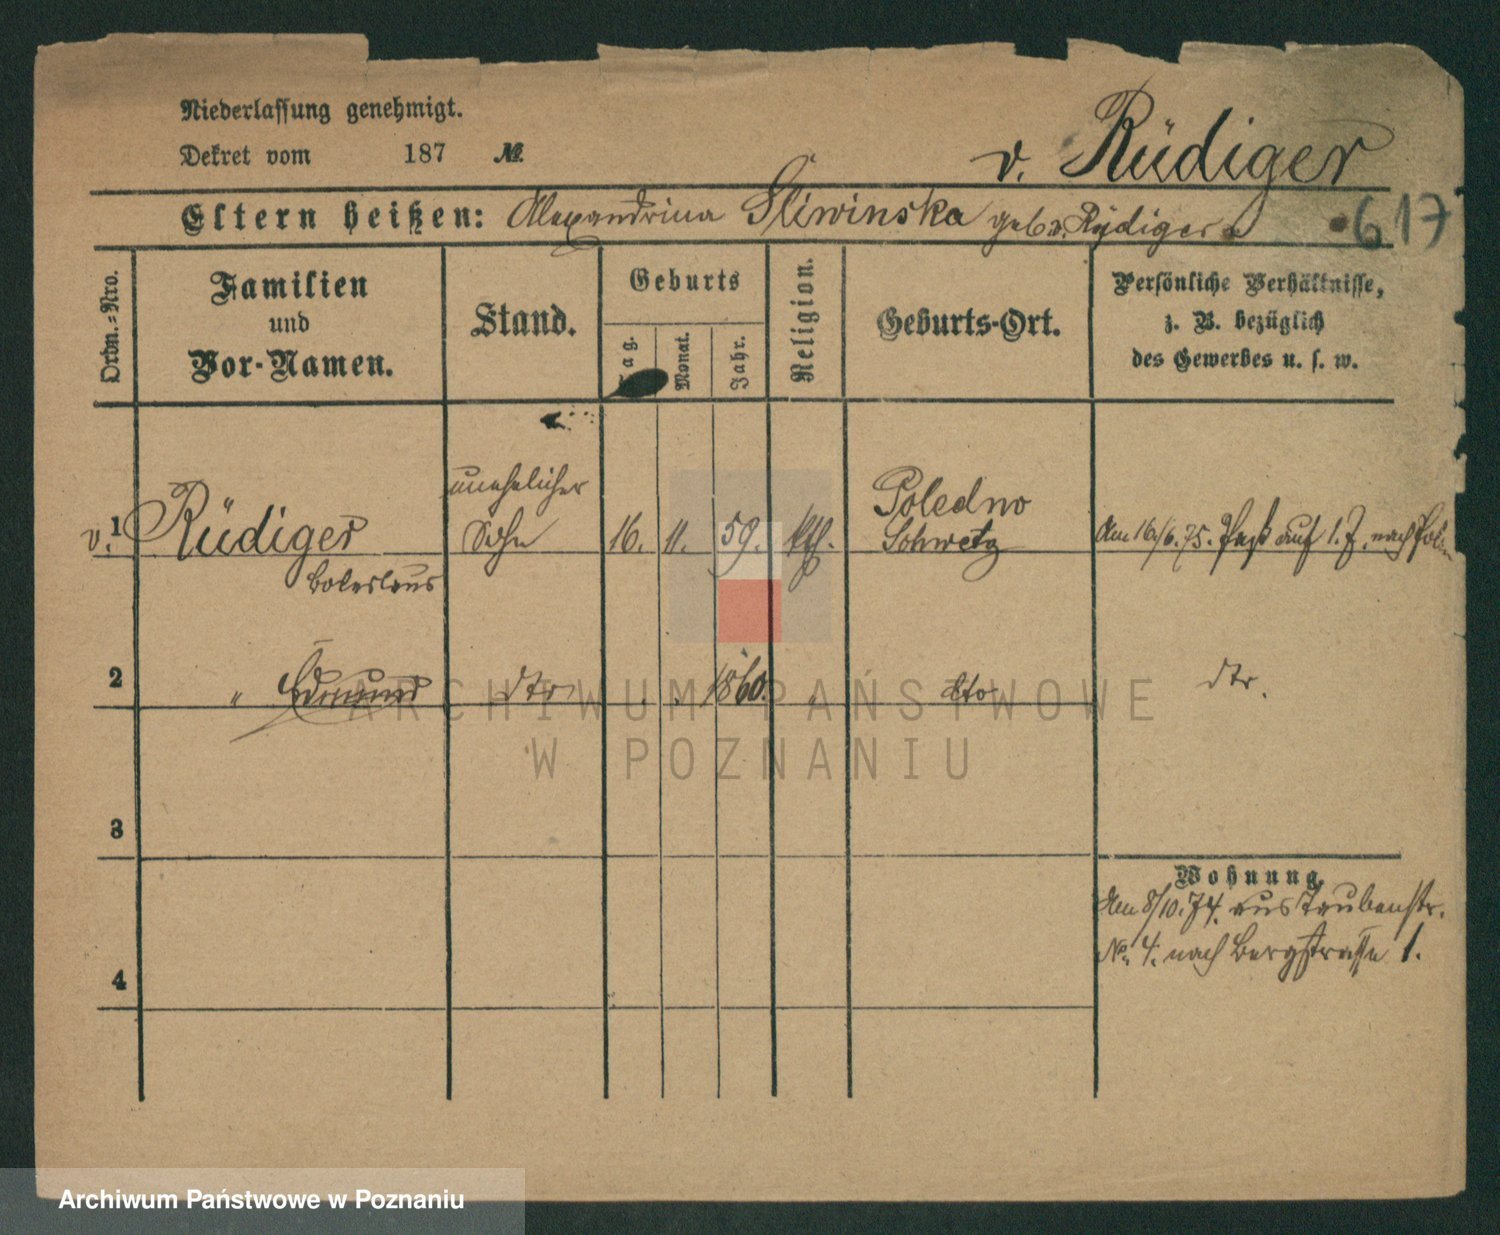 Niederlassung genehmigt.
Dekret vom 187 №
v. Rüdiger
Eltern heißen: Alexandrina Sliwinska geb. v. Rüdiger
617
Ordn.-Nro.
Familien
und
Vor-Namen.
Stand.
Geburts
Tag.
Monat.
Jahr.
Religion.
Geburts-Ort.
Persönliche Verhältnisse,
z. B. bezüglich
des Gewerbes u. s. w.
v. 1 Rüdiger
Boleslaus
unehelicher
Sohn
16. 11. 59. kth.
Poledno
Schwetz
Am 16/6. 75. Paß auf 1. J. nach Polen
2 " Edmund dto 1860. " dto dto.
3
4
Wohnung.
Am 8/10. 74. aus Taubenstr.
No. 4. nach Bergstraße 1.
ARCHIWUM PAŃSTWOWE
W POZNANIU
Archiwum Państwowe w Poznaniu